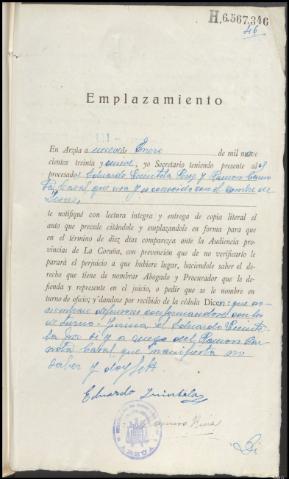 H.6.567.346
46
Emplazamiento
En Arzúa a nueve de Enero de mil nove
cientos treinta y nueve, yo Secretario teniendo presente al
procesado Eduardo Quintela y Ramon
Casal que usa y es conocido con el nombre de
le notifiqué con lectura íntegra y entrega de copia literal el
auto que precede citándole y emplazándole en forma para que
en el término de diez días comparezca ante la Audiencia
provincias de La Coruña, con prevención que de no verificarlo le
parará el perjuicio a que hubiere lugar, haciéndole saber el de-
recho que tiene de nombrar Abogado y Procurador que la de-
fienda y represente en el juicio, o pedir que se le nombren en
turno de oficio; y dándose por recibido de la cédula Dicen: que no
nombran defensores conformandose con los
de turno. Firma el Eduardo Quinte
la por si y a ruego del Ramon
Casal que manifiesta no
saber y doy fe
Eduardo Quintela
ARZUA